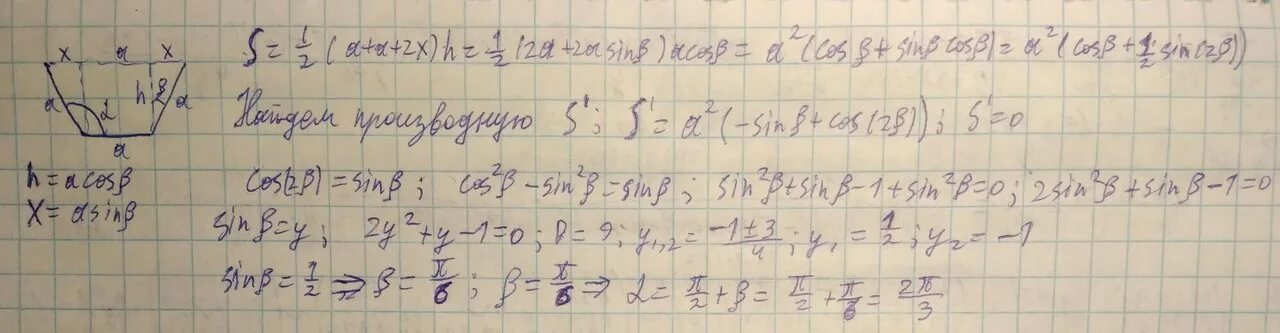 x a x
a α h β a
a
h = a cosβ
x = a sinβ
S = 1/2 (a+a+2x)h = 1/2 (2a+2a sinβ) a cosβ = a²(cosβ + sinβ cosβ) = a²(cosβ + 1/2 sin(2β))
Найдем производную S'; S' = a²(-sinβ + cos(2β)); S' = 0
cos(2β) = sinβ; cos²β - sin²β = sinβ; sin²β + sinβ - 1 + sin²β = 0; 2sin²β + sinβ - 1 = 0
sinβ = y; 2y² + y - 1 = 0; D = 9; y₁,₂ = (-1±3)/4; y₁ = 1/2; y₂ = -1
sinβ = 1/2 ⇒ β = π/6; β = π/6 ⇒ α = π/2 + β = π/2 + π/6 = 2π/3